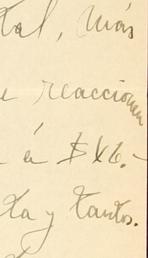 tal, más
e reaccionen
á $46.-
ta y tantos.